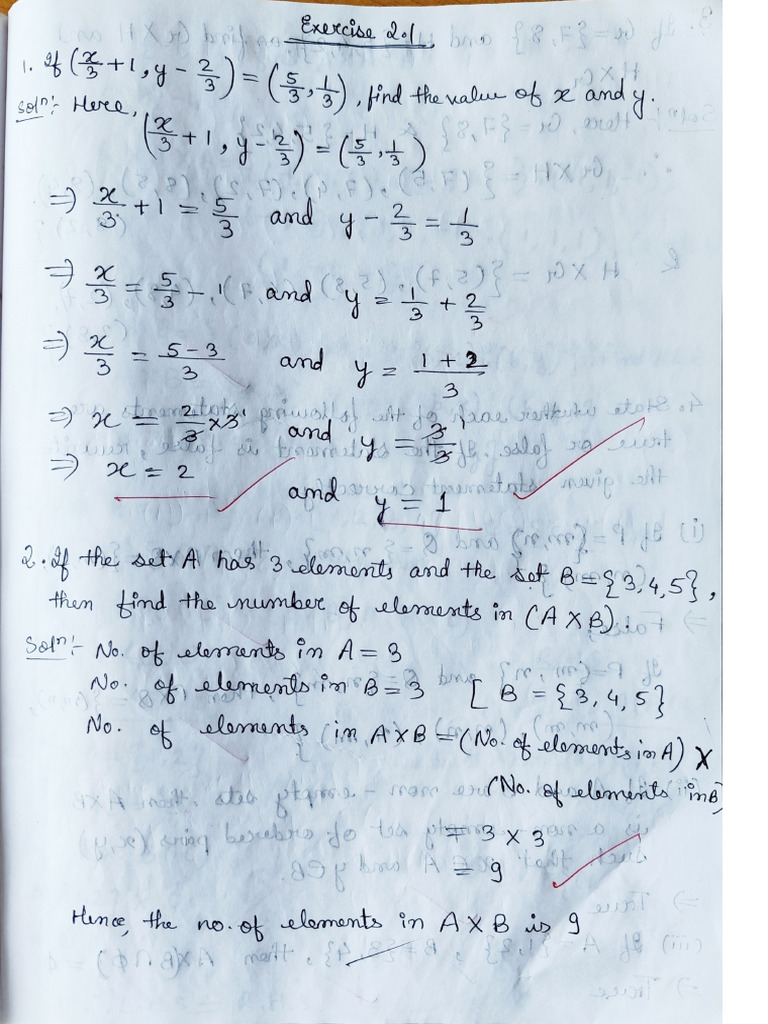 Exercise 2.1
1. If (x/3 + 1, y - 2/3) = (5/3, 1/3), find the value of x and y.
Solⁿ:- Here,
(x/3 + 1, y - 2/3) = (5/3, 1/3)
⇒ x/3 + 1 = 5/3 and y - 2/3 = 1/3
⇒ x/3 = 5/3 - 1 and y = 1/3 + 2/3
⇒ x/3 = 5-3/3 and y = 1+2/3
⇒ x = 2/3 × 3 and y = 3/3
⇒ x = 2 and y = 1
2. If the set A has 3 elements and the set B = {3, 4, 5},
then find the number of elements in (A X B).
Solⁿ:- No. of elements in A = 3
No. of elements in B = 3 [ B = {3, 4, 5}
No. of elements in A X B = (No. of elements in A) X
(No. of elements in B)
= 3 X 3
= 9
Hence, the no. of elements in A X B is 9